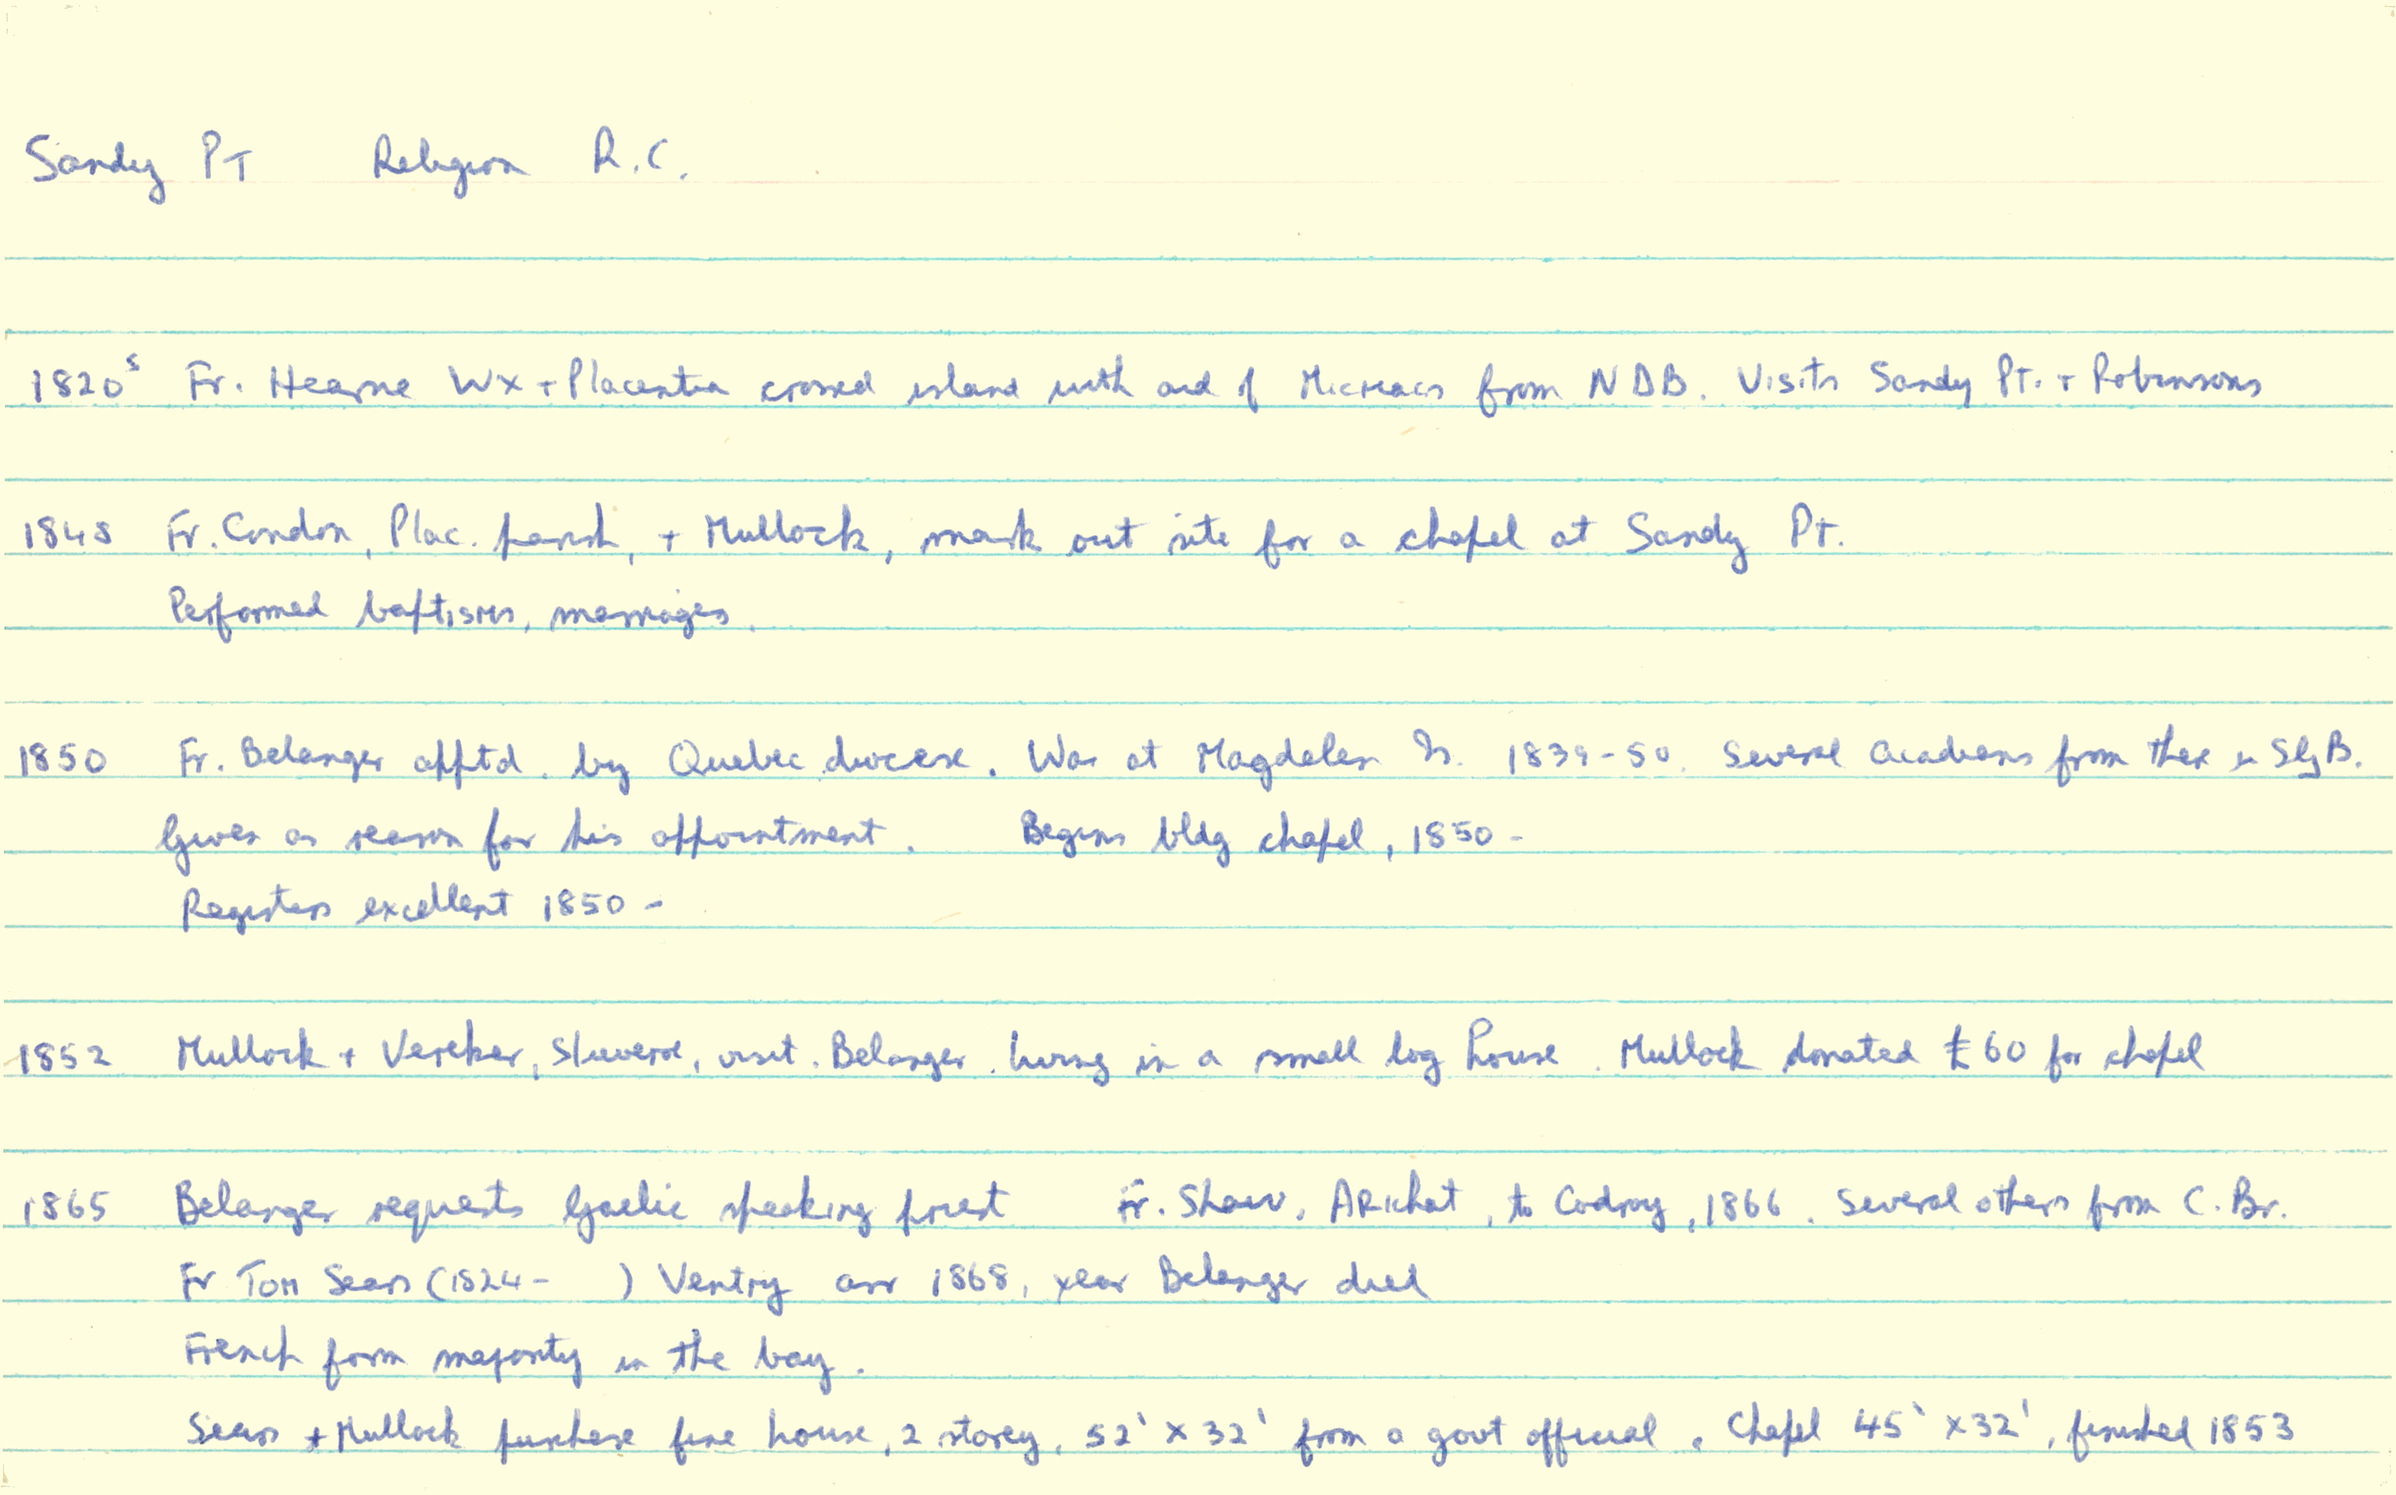 Sandy PT Religion R.C.
1820s Fr. Hearne Wx + Placentia crossed island with aid of Micmacs from NDB. Visits Sandy Pt. + Robinsons
1848 Fr. Condon, Plac. parish, + Mullock, mark out site for a chapel at Sandy Pt.
Performed baptisms, marriages.
1850 Fr. Belanger apptd. by Quebec diocese. Was at Magdalen Is. 1839-50. Several Acadians from there in StgB.
Given as reason for his appointment. Begins bldg chapel, 1850 -
Registers excellent 1850 -
1852 Mullock + Vereker, Slieverue, visit. Belanger. living in a small log house. Mullock donated £60 for chapel
1865 Belanger requests Gaelic speaking priest Fr. Shaw, ARichat, to Codroy, 1866. Several others from C. Br.
Fr Tom Sears (1824- ) Ventry arr 1868, year Belanger died
French form majority in the bay.
Sears + Mullock purchase fine house, 2 storey, 52' x 32' from a govt official. Chapel 45' x 32', finished 1853